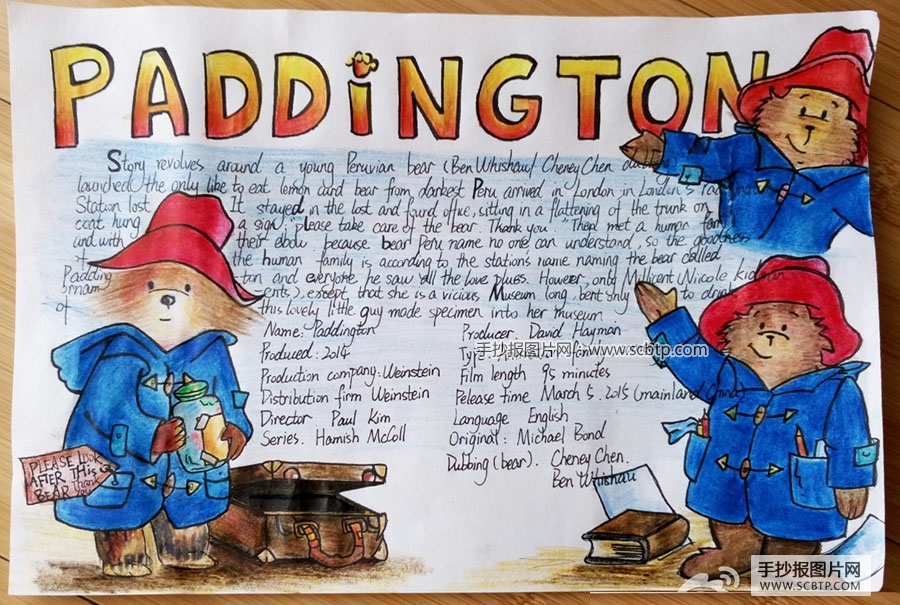 PADDiNGTON
Story revolves around a young Peruvian bear (Ben Whishaw/ Cheney Chen
launched the only like to eat lemon curd bear from darkest Peru arrived in London in London's
Station lost It stayed in the lost and found office, sitting in a flattening of the trunk on
coat hung a sign: please take care of the bear. Thank you. They met a human
and with their because bear Peru name no one can understand, so the goodness
of the human family is according to the station's name naming the bear called
Padding ton and everyone he saw all the love plues. However, only Millicent (Nicole
ornam ents), except that she is a vicious Museum long, bent only to
of this lovely little guy made specimen into her museum
Name: Paddington
Produced: 2014
Production company: Weinstein
Distribution firm Weinstein
Director Paul Kim
Series. Hamish McColl
Producer David Hayman
Film length 95 minutes
Release time March 5. 2015 (mainland China)
Language English
Original: Michael Bond
Dubbing (bear). Cheney Chen.
Ben Whishaw
PLEASE LOOK
AFTER THiS
BEAR Thank
You
手抄报图片网 www.scbtp.com
手抄报图片网
WWW.SCBTP.COM